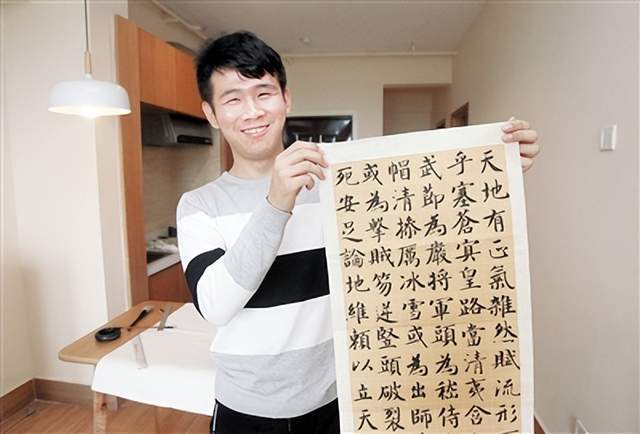 天地有正氣雜然賦流形
乎塞蒼冥皇路當清夷含
武節為嚴將軍頭為嵇侍
帽清操厲冰雪或為出師
或為擊賊笏逆豎頭破裂
死安足論地維賴以立天